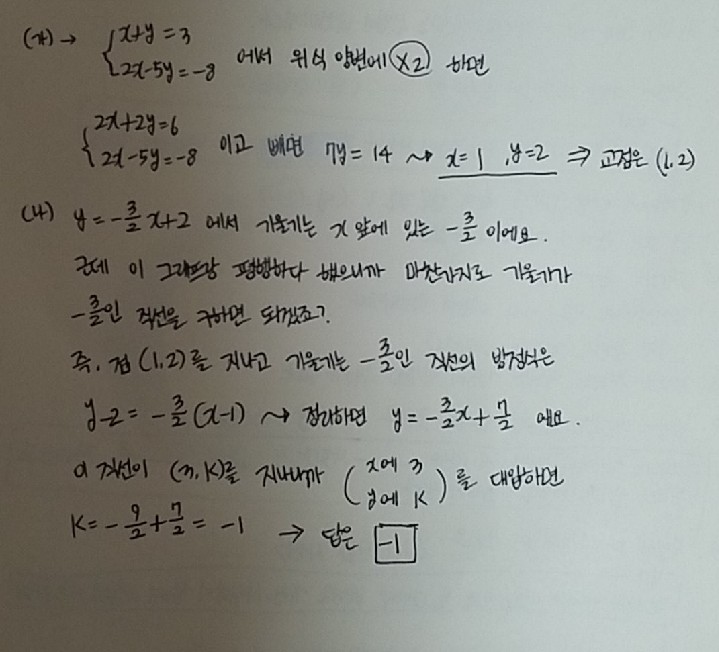 (가) → { x+y=3
2x-5y=-8 에서 위식 양변에 ×2 하면
{ 2x+2y=6
2x-5y=-8 이고 빼면 7y=14 ⇝ x=1, y=2 ⇒ 교점은 (1,2)
(나) y=-3/2x+2 에서 기울기는 x 앞에 있는 -3/2 이에요.
근데 이 그래프랑 평행하다 했으니까 마찬가지로 기울기가
-3/2인 직선을 구하면 되겠죠?
즉, 점 (1,2)를 지나고 기울기는 -3/2인 직선의 방정식은
y-2=-3/2(x-1) ⇝ 정리하면 y=-3/2x+7/2 에요.
이 직선이 (3,K)를 지나니까 ( x에 3
y에 K ) 를 대입하면
K=-9/2+7/2=-1 → 답은 -1